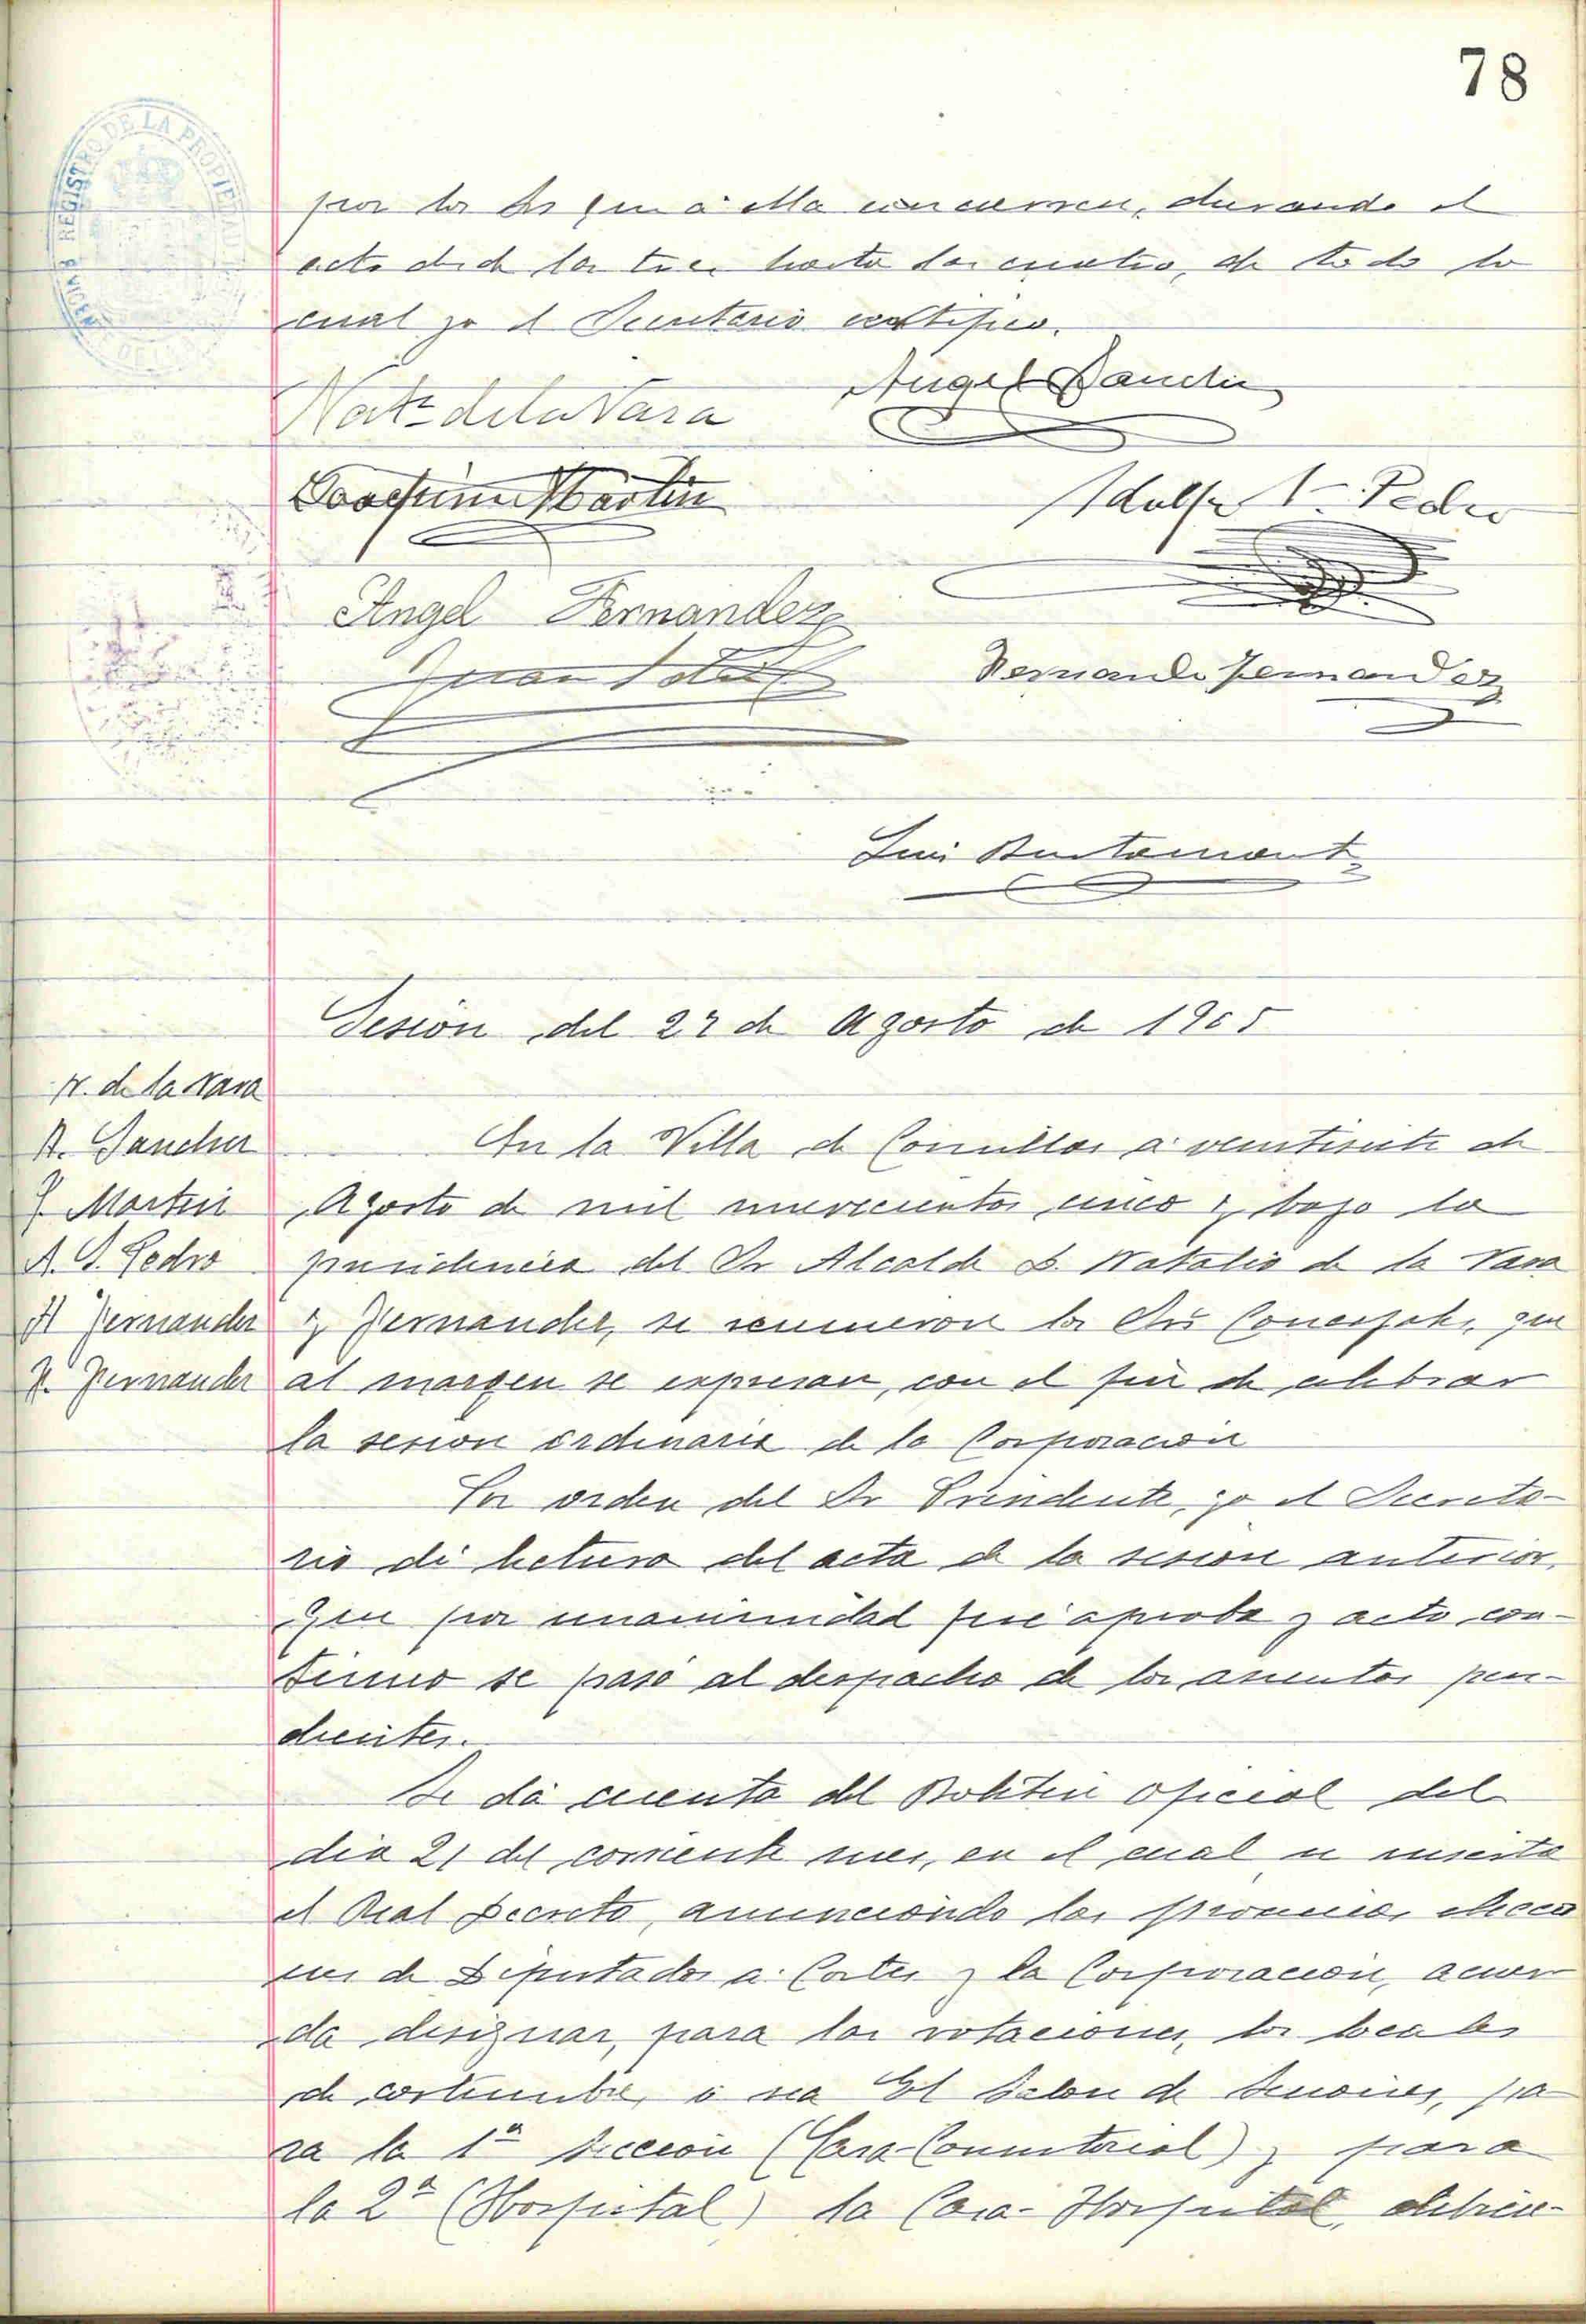 78
REGISTRO DE LA PROPIEDAD
por los Srs que á ella concurren, durando el
acto desde las tres hasta las cuatro, de todo lo
cual yo el Secretario certifico.
Nat.º de la Vara
Angel Sanchez
Joaquin Martin
Adolfo S. Pedro
Angel Fernandez
Juan
Fernando Fernandez
Luis Bustamante
Sesión del 27 de Agosto de 1905
N. de la Vara
A. Sanchez
J. Martin
A. S. Pedro
A Fernandez
F. Fernandez
En la Villa de Comillas a veintisiete de
Agosto de mil novecientos cinco y bajo la
presidencia del Sr Alcalde D. Natalio de la Vara
y Fernandez, se reunieron los Srs Concejales, que
al margen se expresan, con el fin de celebrar
la sesion ordinaria de la Corporación
Por orden del Sr Presidente, yo el Secreta-
rio di lectura del acta de la sesion anterior,
que por unanimidad fué aproba y acto con-
tinuo se pasó al despacho de los asuntos pen-
dientes.
Se dá cuenta del Boletin oficial del
dia 21 del corriente mes, en el cual se inserta
el Real Decreto, anunciando las proximas eleccio
nes de Diputados a Cortes y la Corporacion, acuer
da designar, para las votaciones, los locales
de costumbre, ó sea El Salon de Sesiones, pa
ra la 1ª Seccion (Casa-Consistorial) y para
la 2ª (Hospital) la Casa-Hospital, debien-